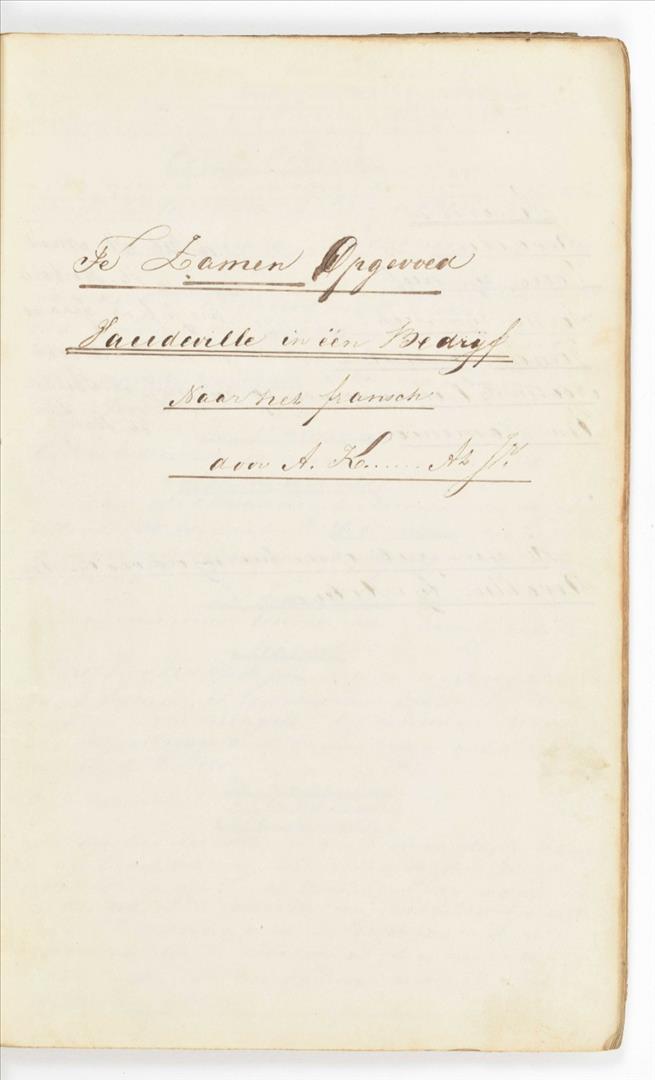 Te Zamen Opgevoed
Vaudeville in één Bedrijf
Naar het fransch
door A. K...... Az Jr.